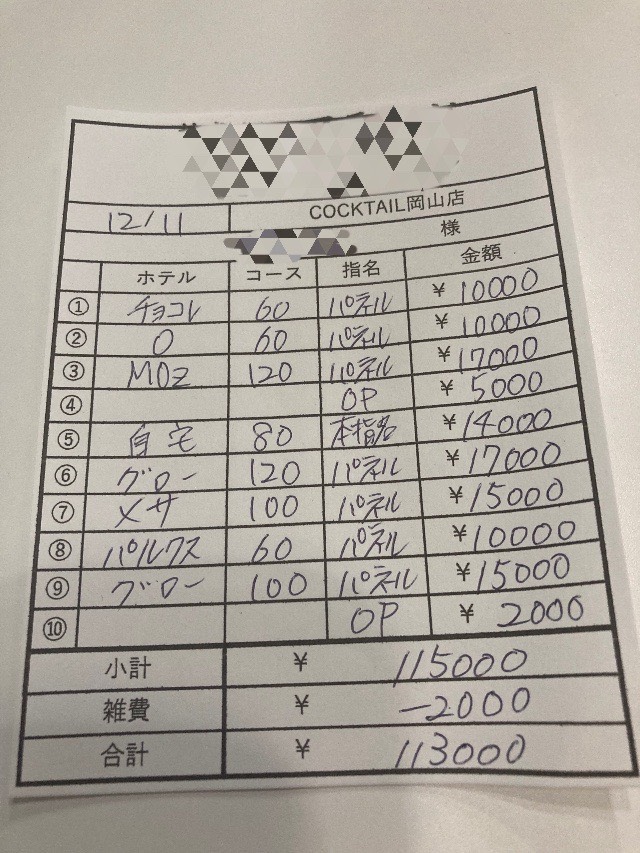 12/11 COCKTAIL岡山店
様
ホテル コース 指名 金額
① チョコレ 60 パネル ¥ 10000
② O 60 パネル ¥ 10000
③ MOz 120 パネル ¥ 17000
④ OP ¥ 5000
⑤ 自宅 80 本指名 ¥ 14000
⑥ グロー 120 パネル ¥ 17000
⑦ メサ 100 パネル ¥ 15000
⑧ パルクス 60 パネル ¥ 10000
⑨ グロー 100 パネル ¥ 15000
⑩ OP ¥ 2000
小計 ¥ 115000
雑費 ¥ -2000
合計 ¥ 113000